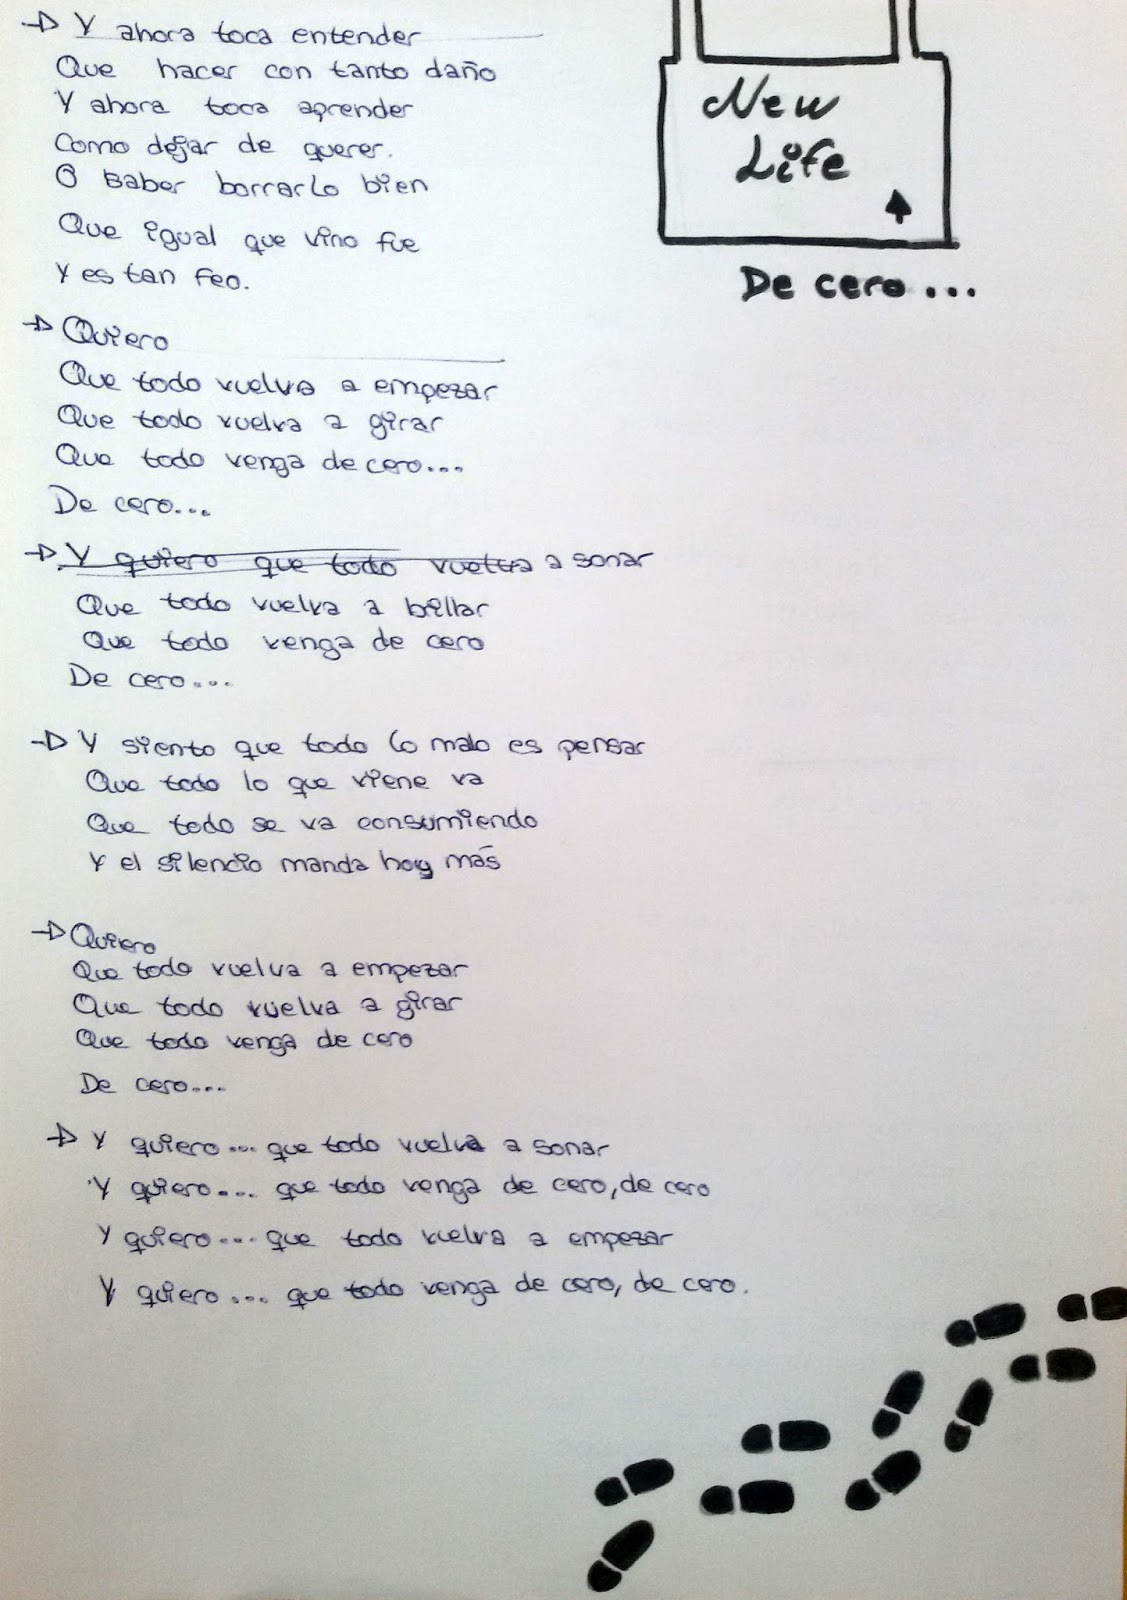 Y ahora toca entender
Que hacer con tanto daño
Y ahora toca aprender
Como dejar de querer.
O saber borrarlo bien
Que igual que vino fue
Y es tan feo.
New
Life
De cero...
Quiero
Que todo vuelva a empezar
Que todo vuelva a girar
Que todo venga de cero...
De cero...
Y quiero que todo vuelva a sonar
Que todo vuelva a brillar
Que todo venga de cero
De cero....
Y siento que todo lo malo es pensar
Que todo lo que viene va
Que todo se va consumiendo
Y el silencio manda hoy más
Quiero
Que todo vuelva a empezar
Que todo vuelva a girar
Que todo venga de cero
De cero...
Y quiero... que todo vuelva a sonar
Y quiero.... que todo venga de cero, de cero
Y quiero... que todo vuelva a empezar
Y quiero... que todo venga de cero, de cero.